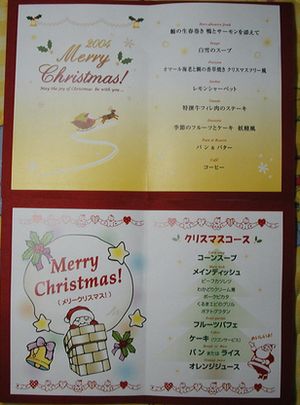 2004
Merry
Christmas!
May the joy of Christmas be with you...
鮪の生春巻き 鴨とサーモンを添えて
Potage
白雪のスープ
オマール海老と鯛の香草焼き クリスマスツリー風
Sorbet
レモンシャーベット
特撰牛フィレ肉のステーキ
季節のフルーツとケーキ 妖精風
パン & バター
Café
コーヒー
Merry
Christmas!
(メリークリスマス!)
クリスマスコース
コーンスープ
メインディッシュ
ビーフカツレツ
わかどりクリーム煮
ポークピカタ
くるまエビのグリル
ポテトグラタン
フルーツパフェ
ケーキ (ワゴンサービス)
パン または ライス
オレンジジュース